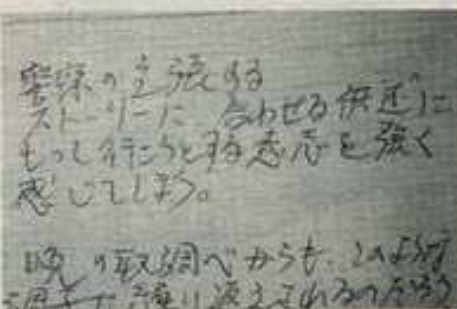 警察の主張する
ストーリーに 合わせる供述に
もって行こうとする意志を強く
感じてしまう。
晩の取調べからも、このような
調子で繰り返えされるのだろう